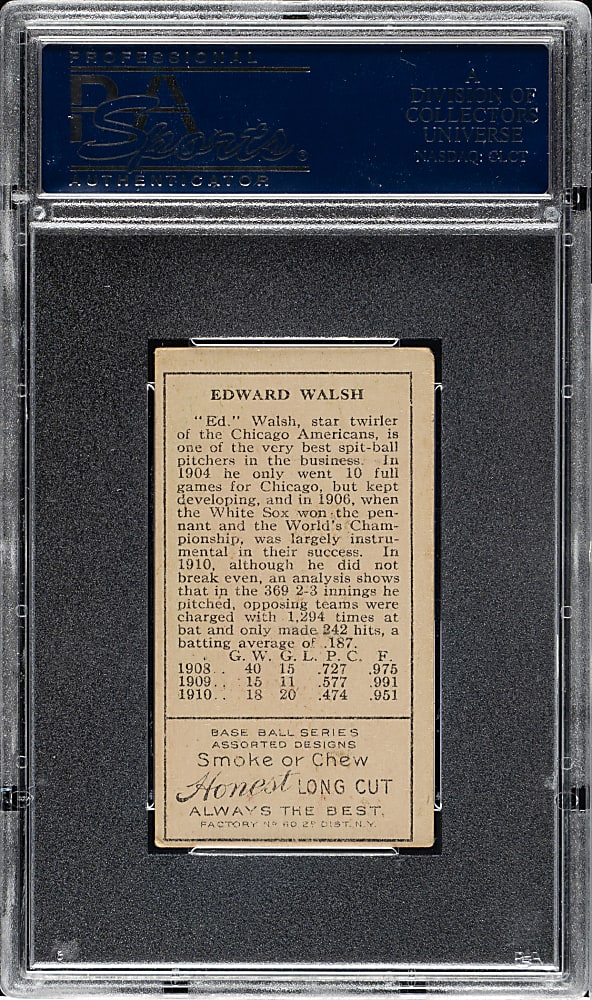 PROFESSIONAL
PSA
Sports®
AUTHENTICATOR
A
DIVISION OF
COLLECTORS
UNIVERSE
NASDAQ: CLCT
EDWARD WALSH
"Ed." Walsh, star twirler
of the Chicago Americans, is
one of the very best spit-ball
pitchers in the business. In
1904 he only went 10 full
games for Chicago, but kept
developing, and in 1906, when
the White Sox won the pen-
nant and the World's Cham-
pionship, was largely instru-
mental in their success. In
1910, although he did not
break even, an analysis shows
that in the 369 2-3 innings he
pitched, opposing teams were
charged with 1,294 times at
bat and only made 242 hits, a
batting average of .187.
G. W. G. L. P. C. F.
1908.. 40 15 .727 .975
1909.. 15 11 .577 .991
1910.. 18 20 .474 .951
BASE BALL SERIES
ASSORTED DESIGNS
Smoke or Chew
Honest LONG CUT
ALWAYS THE BEST.
FACTORY Nº 60 2º DIST. N.Y.
PSA